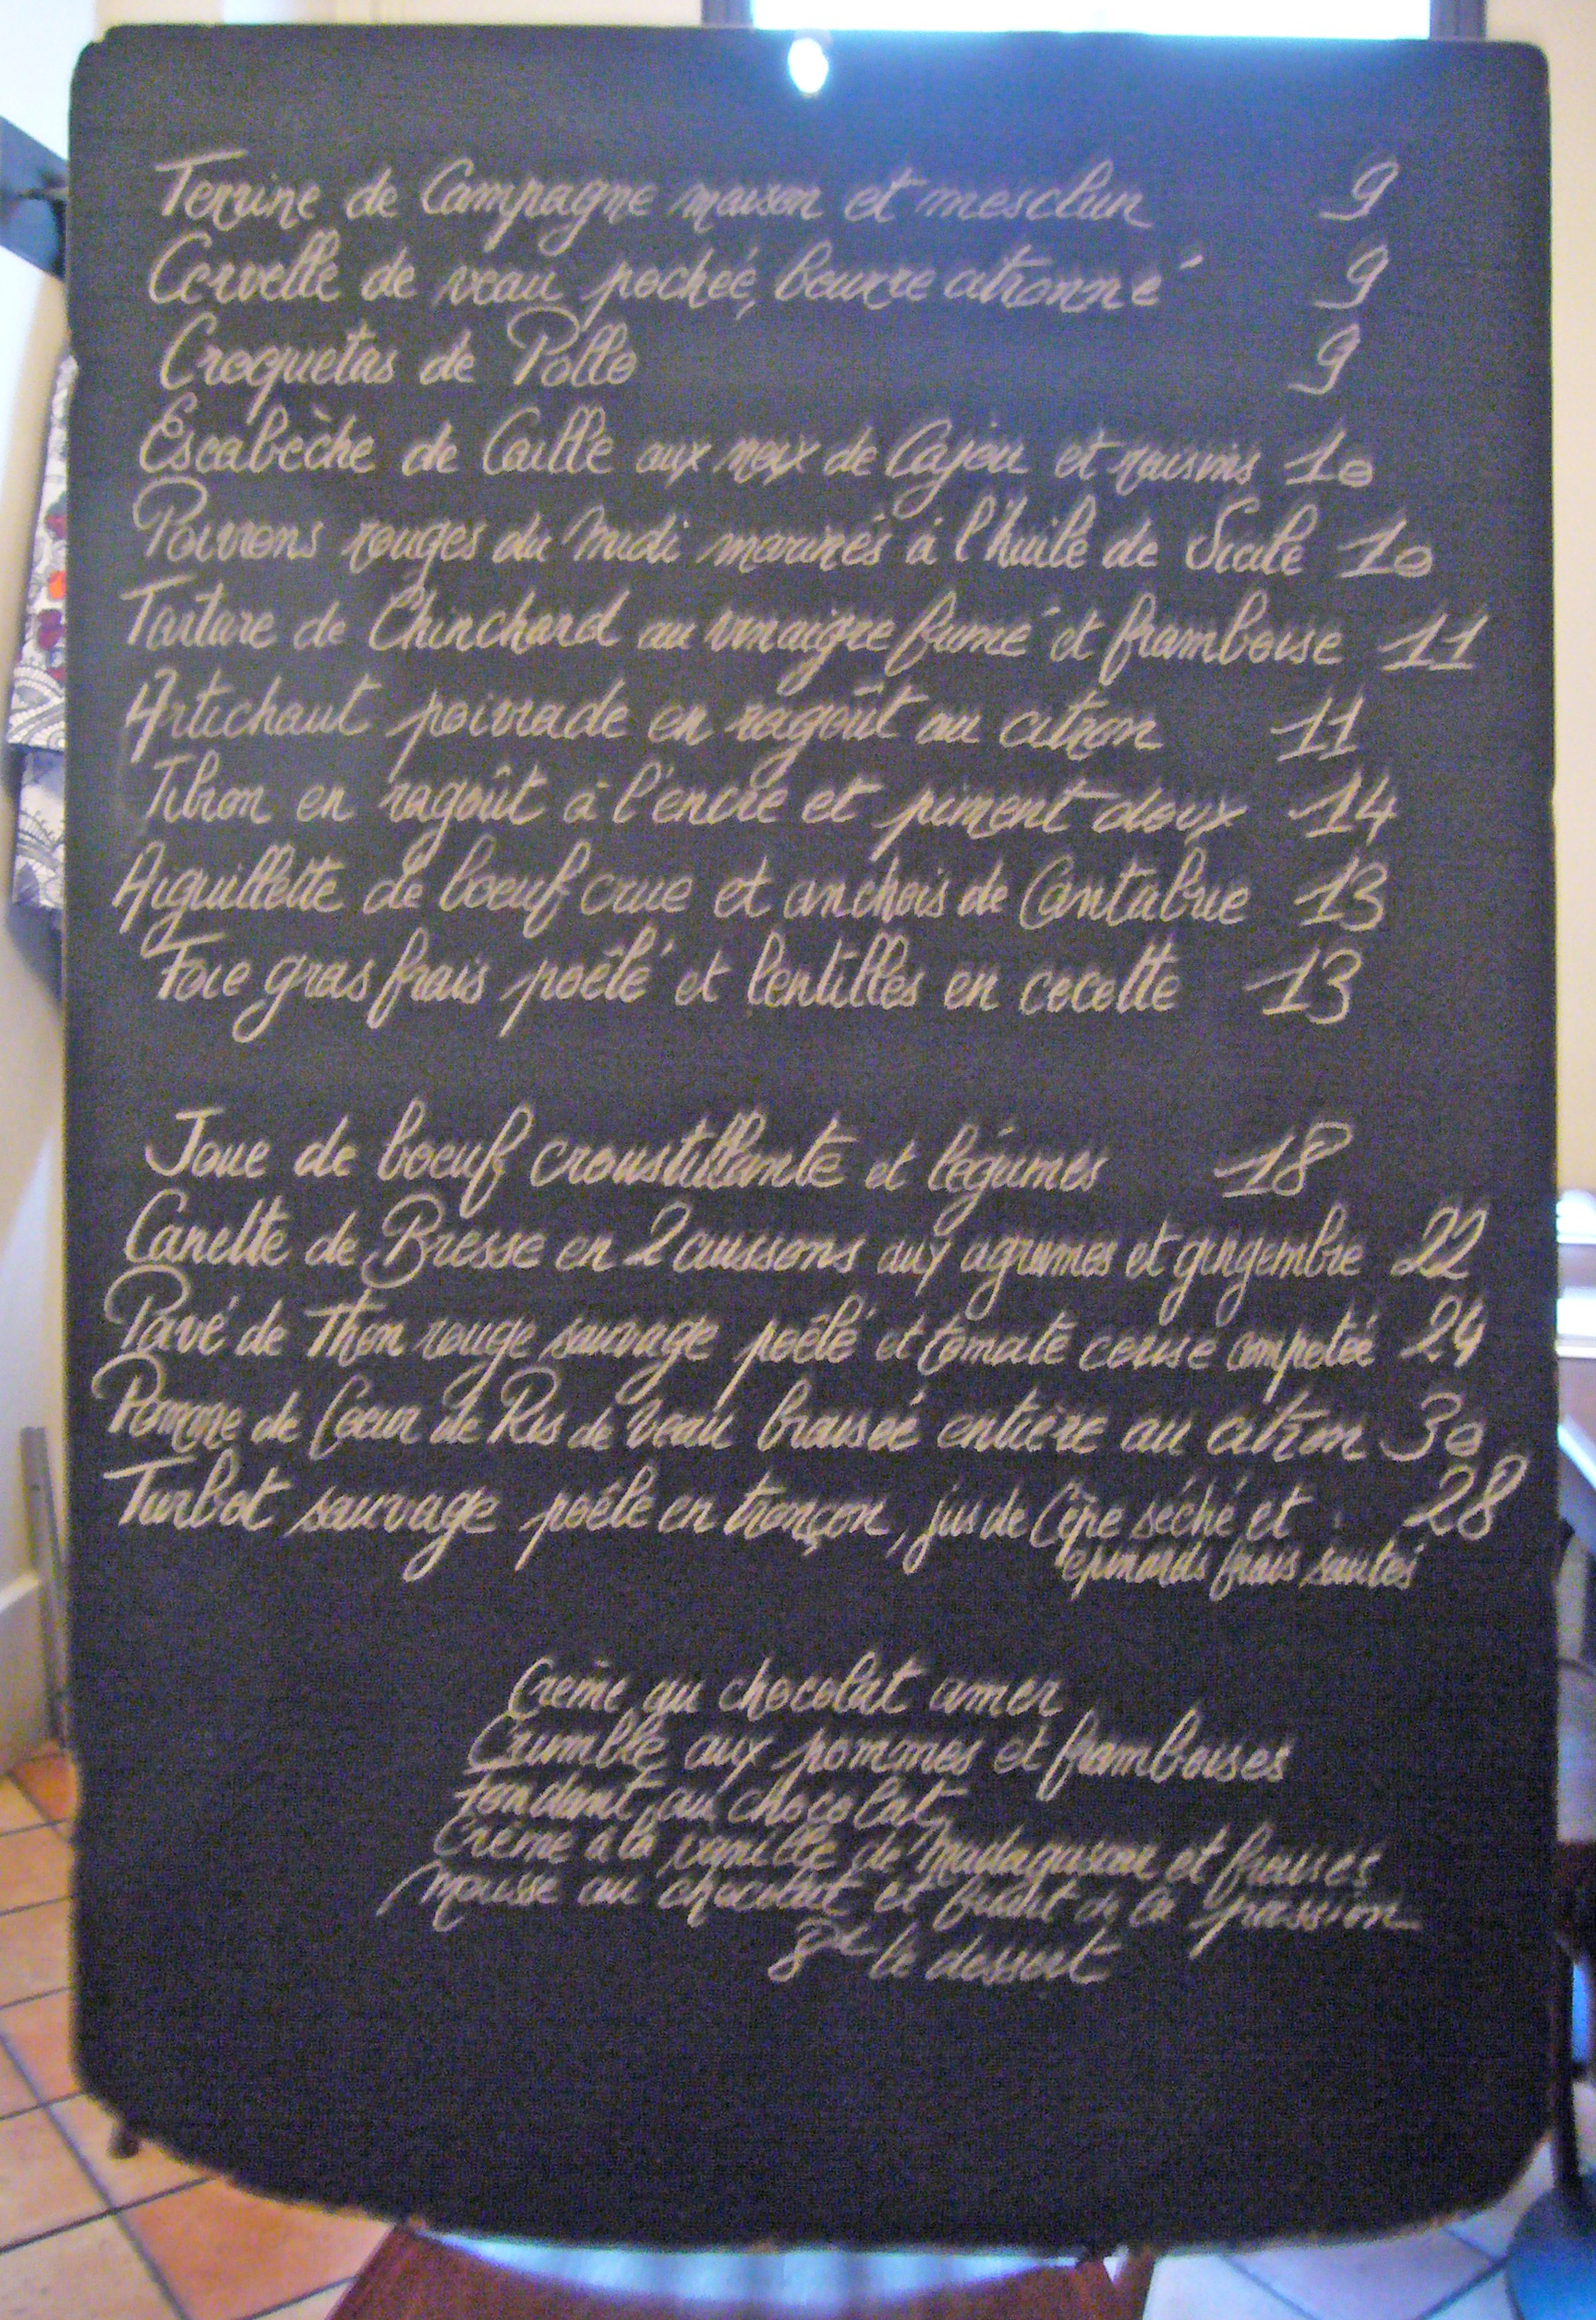 Terrine de Campagne maison et mesclun 9
Cervelle de veau pochée, beurre citronné 9
Croquetas de Pollo 9
Escabèche de Caille aux noix de Cajou et raisins 10
Poivrons rouges du Midi marinés à l'huile de Sicile 10
Tartare de Chinchard au vinaigre fumé et framboise 11
Artichaut poivrade en ragoût au citron 11
en ragoût à l'encre et piment doux 14
Aiguillette de boeuf crue et anchois de Cantabrie 13
Foie gras frais poêlé et lentilles en cocotte 13
Joue de boeuf croustillante et légumes 18
Canette de Bresse en 2 cuissons aux agrumes et gingembre 22
Pavé de Thon rouge sauvage poêlé et tomate cerise compotée 24
Pomme de Coeur de Ris de veau braisée entière au citron 30
Turbot sauvage poêlé en tronçon, jus de Cèpe séché et 28
épinards frais sautés
Crème au chocolat amer
Crumble aux pommes et framboises
Fondant au chocolat
Crème à la vanille de Madagascar et fraises
Mousse au chocolat et fruit de la passion
8€ le dessert